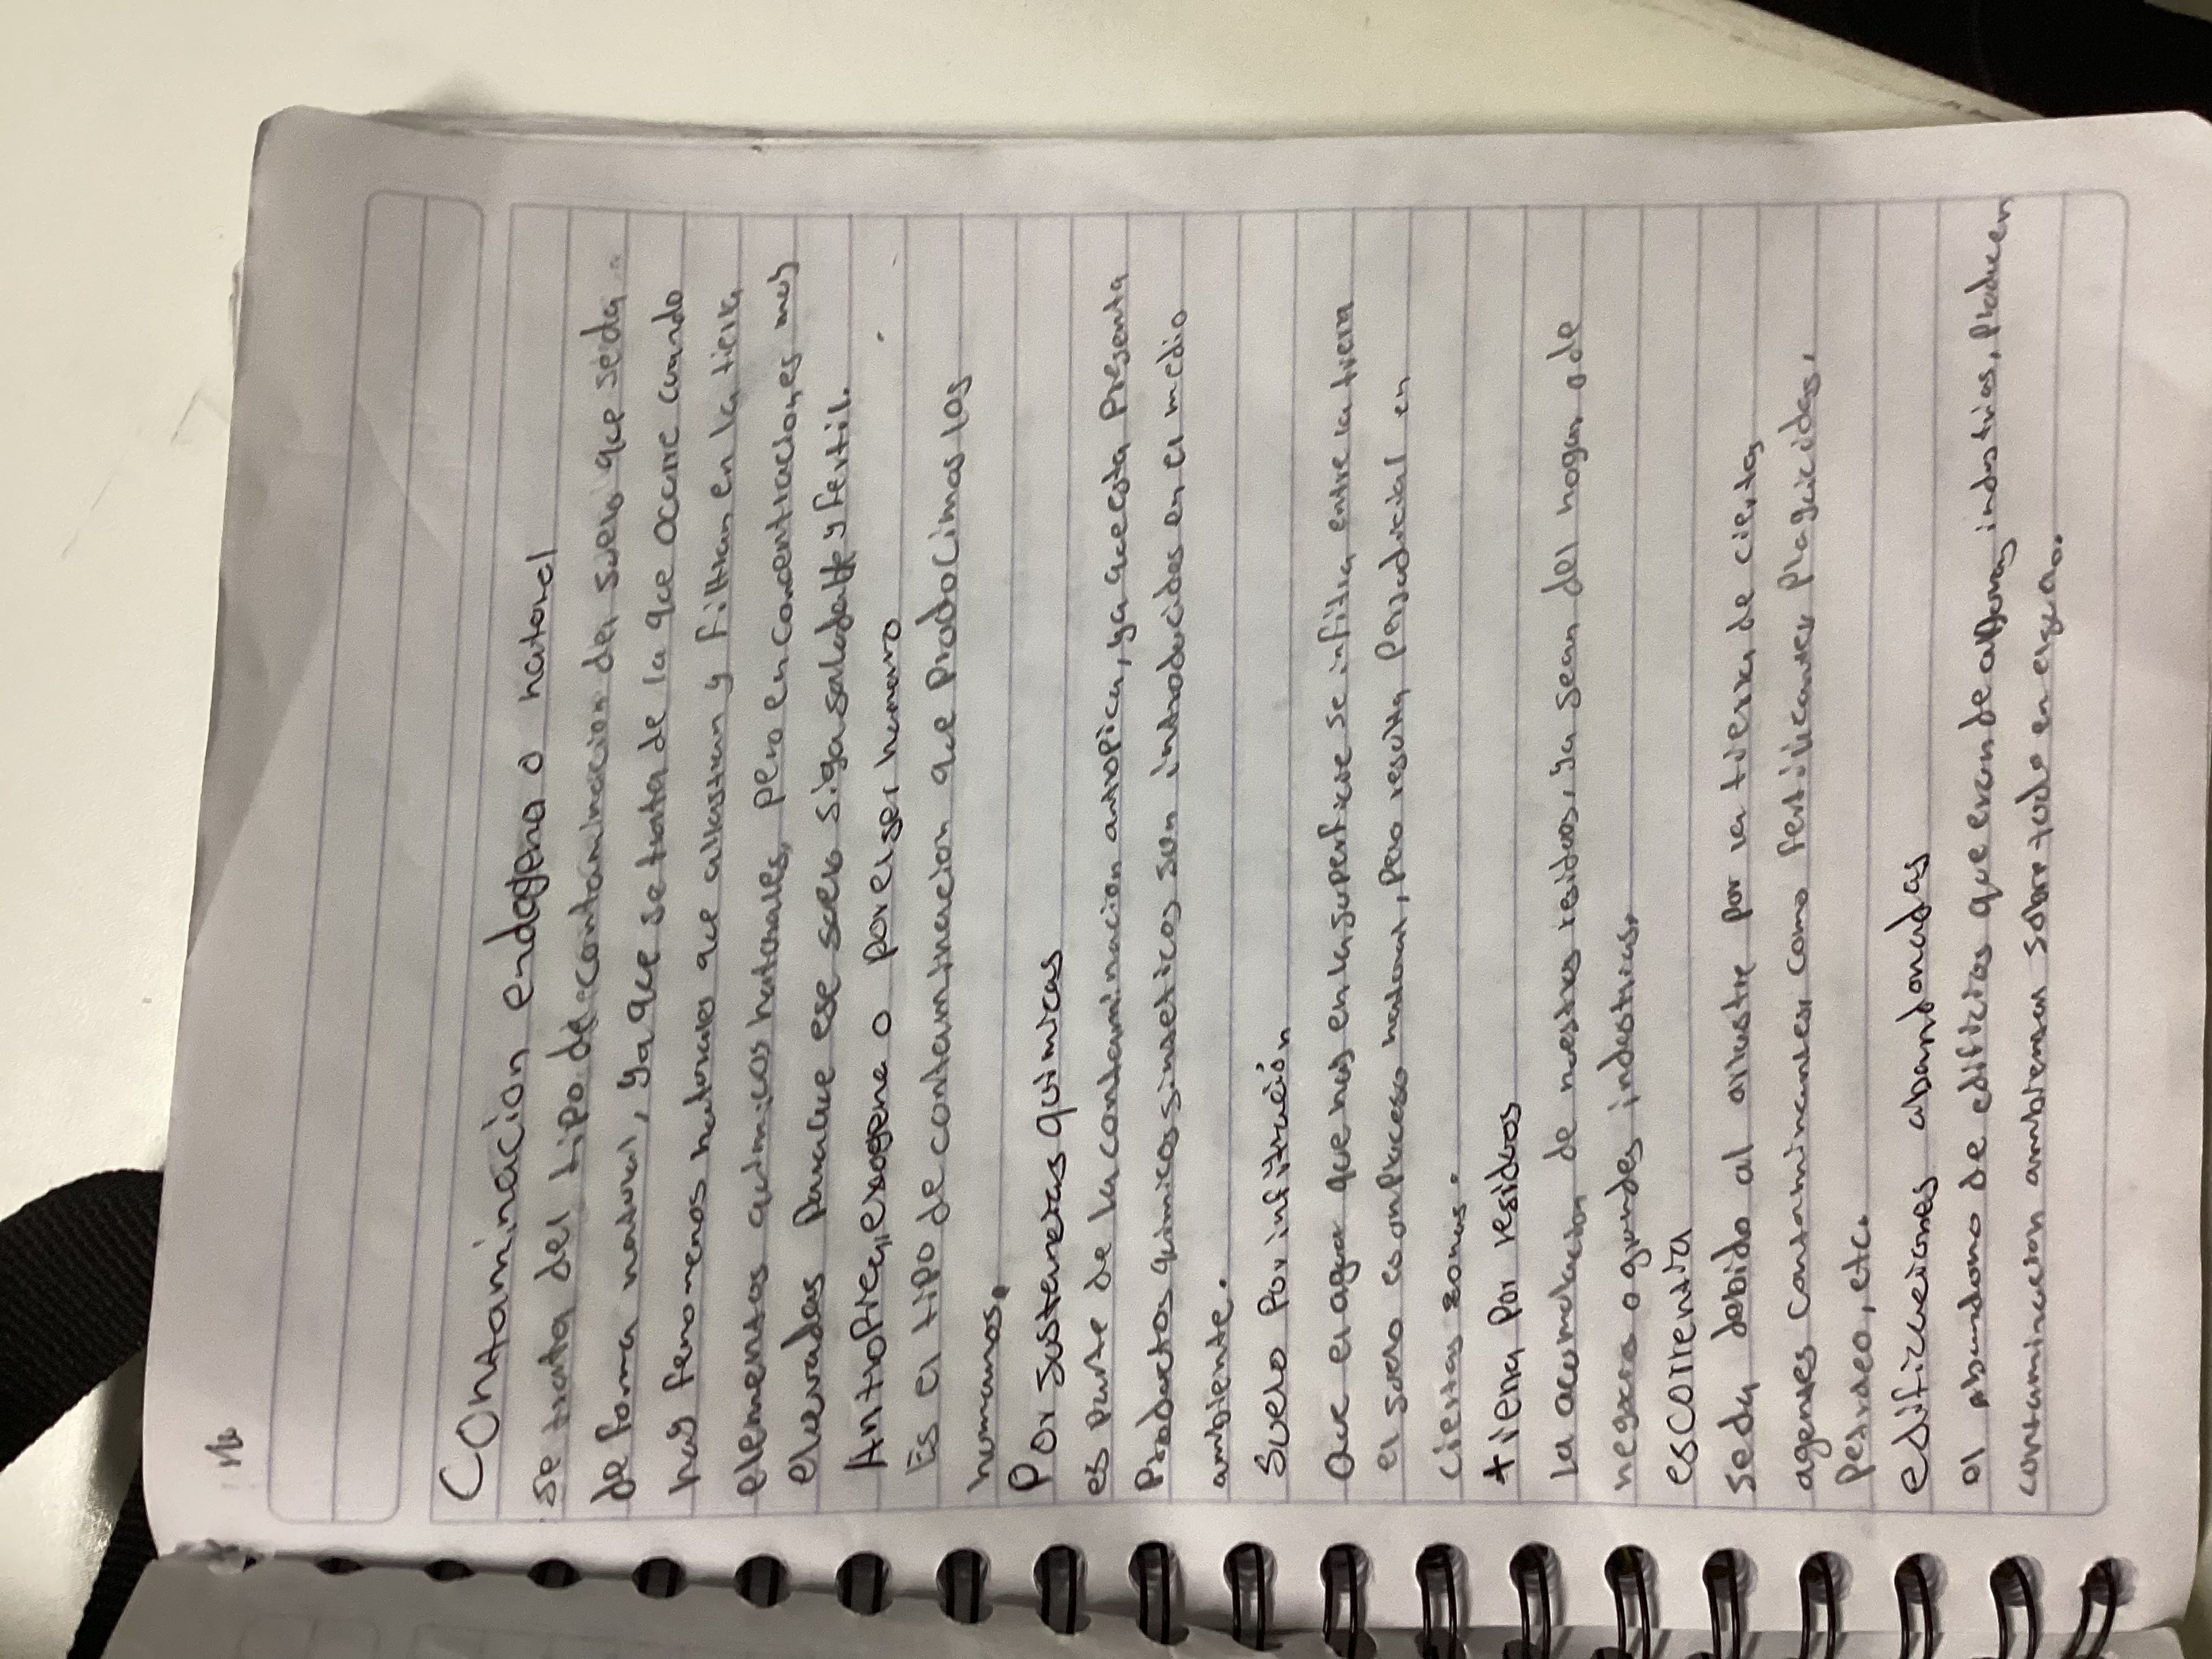 Contaminacion endogeno o natural
se trata del tipo de contaminacion del suelo que se da
de forma natural, ya que se trata de la que ocurre cuando
hay fenomenos naturales que arrastran y filtran en la tierra
elementos quimicos naturales, pero en concentraciones muy
elevadas para que ese suelo siga saludable y fertil.
Antropica, exogena o por el ser humano
Es el tipo de contaminacion que producimos los
humanos.
Por sustancias quimicas
es parte de la contaminacion antropica, ya que esta presenta
Productos quimicos sinteticos son introducidos en el medio
ambiente.
Suelo por infitración
Que el agua que hay en la superficie se infiltra entre la tierra
el suelo es un proceso natural, pero resulta perjudicial en
ciertas zonas.
tierra por residuos
la acumulacion de nuestros residuos, ya sean del hogar o de
negocios o grandes industrias.
escorrentia
se da debido al arrastre por la tierra de ciertos
agentes contaminantes como fertilicantes plaguicidas,
petroleo, etc.
edificaciones abandonadas
el abandono de edificios que eran de algunas industrias, producen
contaminacion ambiental sobre todo en